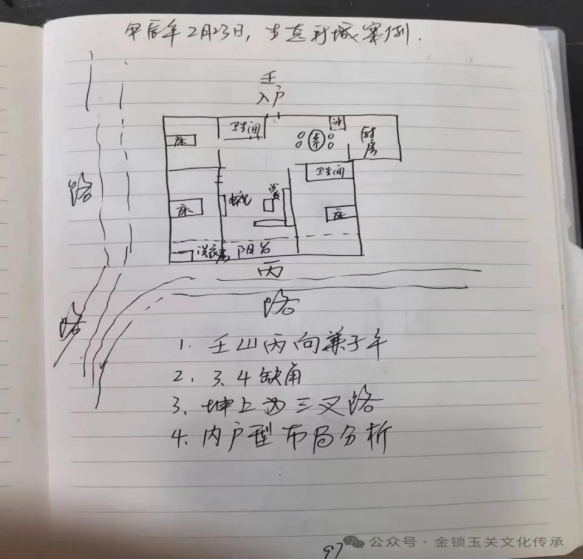 甲辰年2月23日,
新城案例.
壬
入户
卫生间
冰
桌
厨房
床
卫生间
路
床
电视
沙发
床
阳台
丙
路
路
1. 壬山丙向兼子午
2. 3.4缺角
3. 坤上为三叉路
4. 内户型布局分析
97
公众号·金锁玉关文化传承